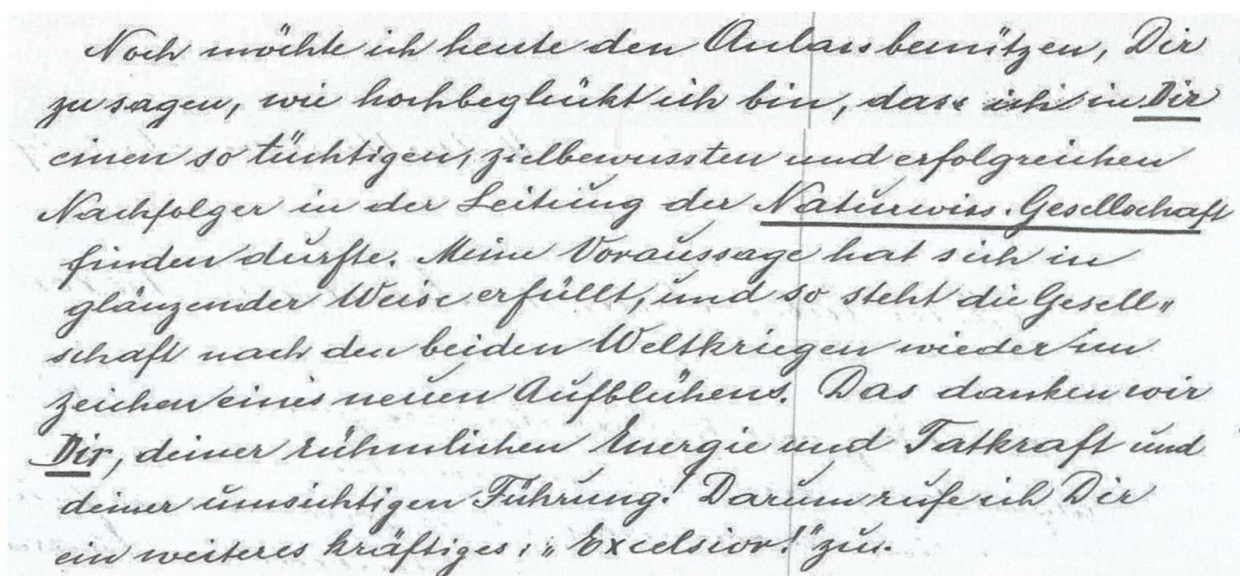 Noch möchte ich heute den Anlass benützen, Dir
zu sagen, wie hochbeglückt ich bin, dass ich in Dir
einen so tüchtigen, zielbewussten und erfolgreichen
Nachfolger in der Leitung der Naturwiss. Gesellschaft
finden durfte. Meine Voraussage hat sich in
glänzender Weise erfüllt, und so steht die Gesell„
schaft nach den beiden Weltkriegen wieder im
Zeichen eines neuen Aufblühens. Das danken wir
Dir, deiner rühmlichen Energie und Tatkraft und
deiner umsichtigen Führung! Darum rufe ich Dir
ein weiteres kräftiges: „Excelsior!" zu.